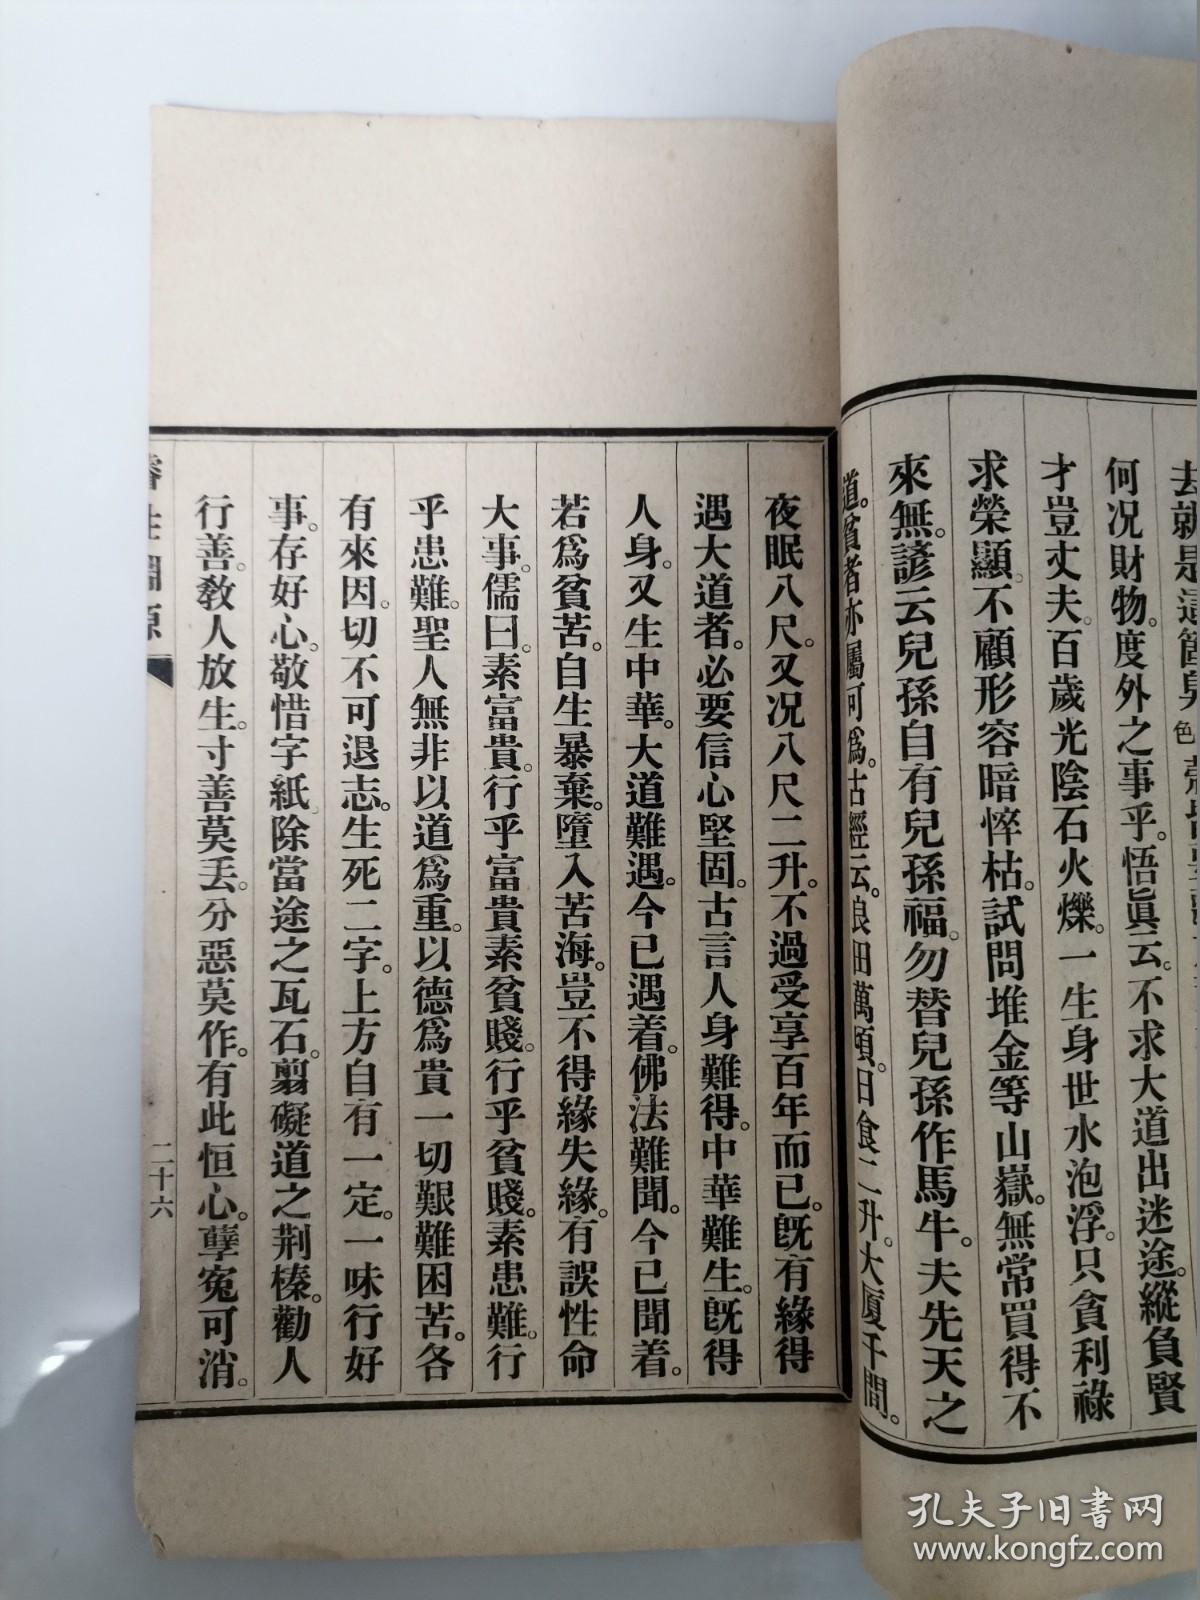 去就是這箇臭色
何況財物。度外之事乎。悟眞云。不求大道出迷途。縱負賢
才豈丈夫。百歲光陰石火爍。一生身世水泡浮。只貪利祿
求榮顯。不顧形容暗悴枯。試問堆金等山嶽。無常買得不
來無。諺云兒孫自有兒孫福。勿替兒孫作馬牛。夫先天之
道。貧者亦屬可爲。古經云。良田萬頃。日食二升。大廈千間。
夜眠八尺。又況八尺二升。不過受享百年而已。旣有緣得
遇大道者。必要信心堅固。古言人身難得。中華難生。旣得
人身。又生中華。大道難遇。今已遇着。佛法難聞。今已聞着。
若爲貧苦。自生暴棄。墮入苦海。豈不得緣失緣。有誤性命
大事。儒曰。素富貴。行乎富貴素貧賤。行乎貧賤。素患難。行
乎患難。聖人無非以道爲重。以德爲貴一切艱難困苦。各
有來因。切不可退志。生死二字。上方自有一定。一味行好
事。存好心。敬惜字紙除當途之瓦石。剪礙道之荆榛。勸人
行善。敎人放生。寸善莫丢。分惡莫作。有此恒心。孽寃可消。
二十六
孔夫子旧书网
www.kongfz.com